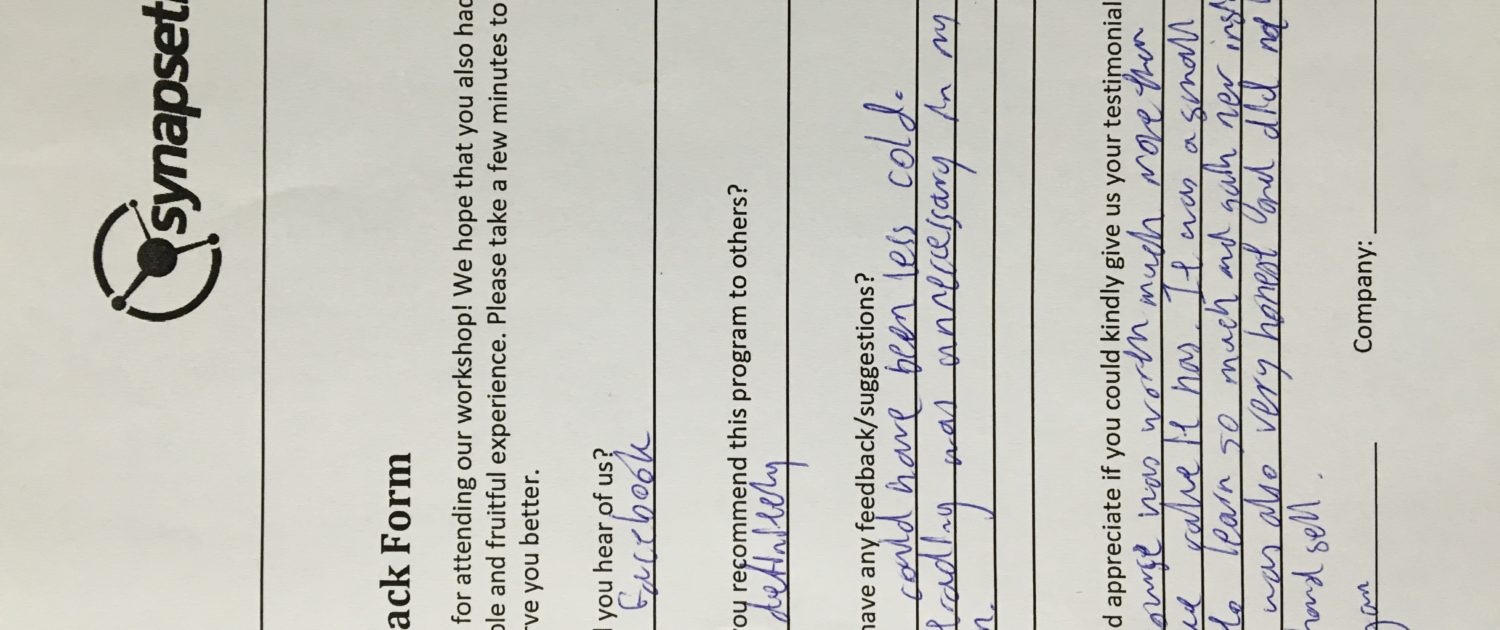 synapset
ack Form
for attending our workshop! We hope that you also had
ble and fruitful experience. Please take a few minutes to
rve you better.
d you hear of us?
Facebook
you recommend this program to others?
definitely
have any feedback/suggestions?
could have been less cold.
trading was unnecessary in my
n.
d appreciate if you could kindly give us your testimonial
was worth much more than
value it has. It was a small
to learn so much and gain new
was also very honest and did not
hard sell.
Company: